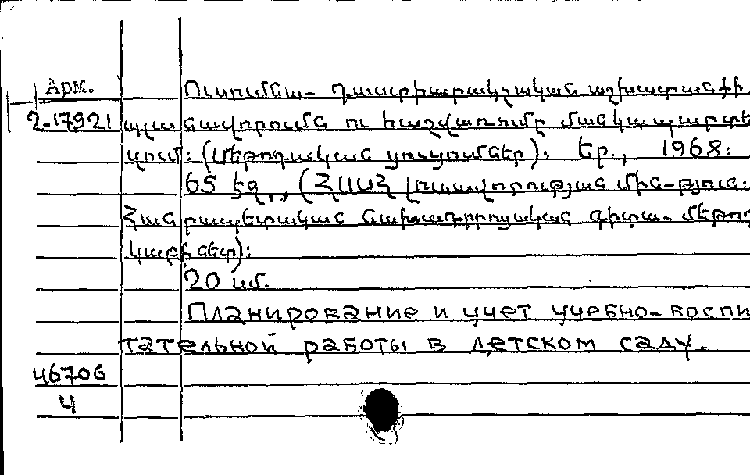 Арм. Ուսումնա- դաստիարակչական աշխատանքի
2-17921 պլանավորումն ու հաշվառումը մանկապարտե
զում: (Մեթոդական ցուցումներ): Եր., 1968:
65 էջ, (ՀՍՍՀ լուսավորության մին-թյուն:
Հանրապետական նախադպրոցական գիտա- մեթոդ
կաբինետ):
20 սմ.
Планирование и учет учебно-воспи
тательной работы в детском саду.
46706
4